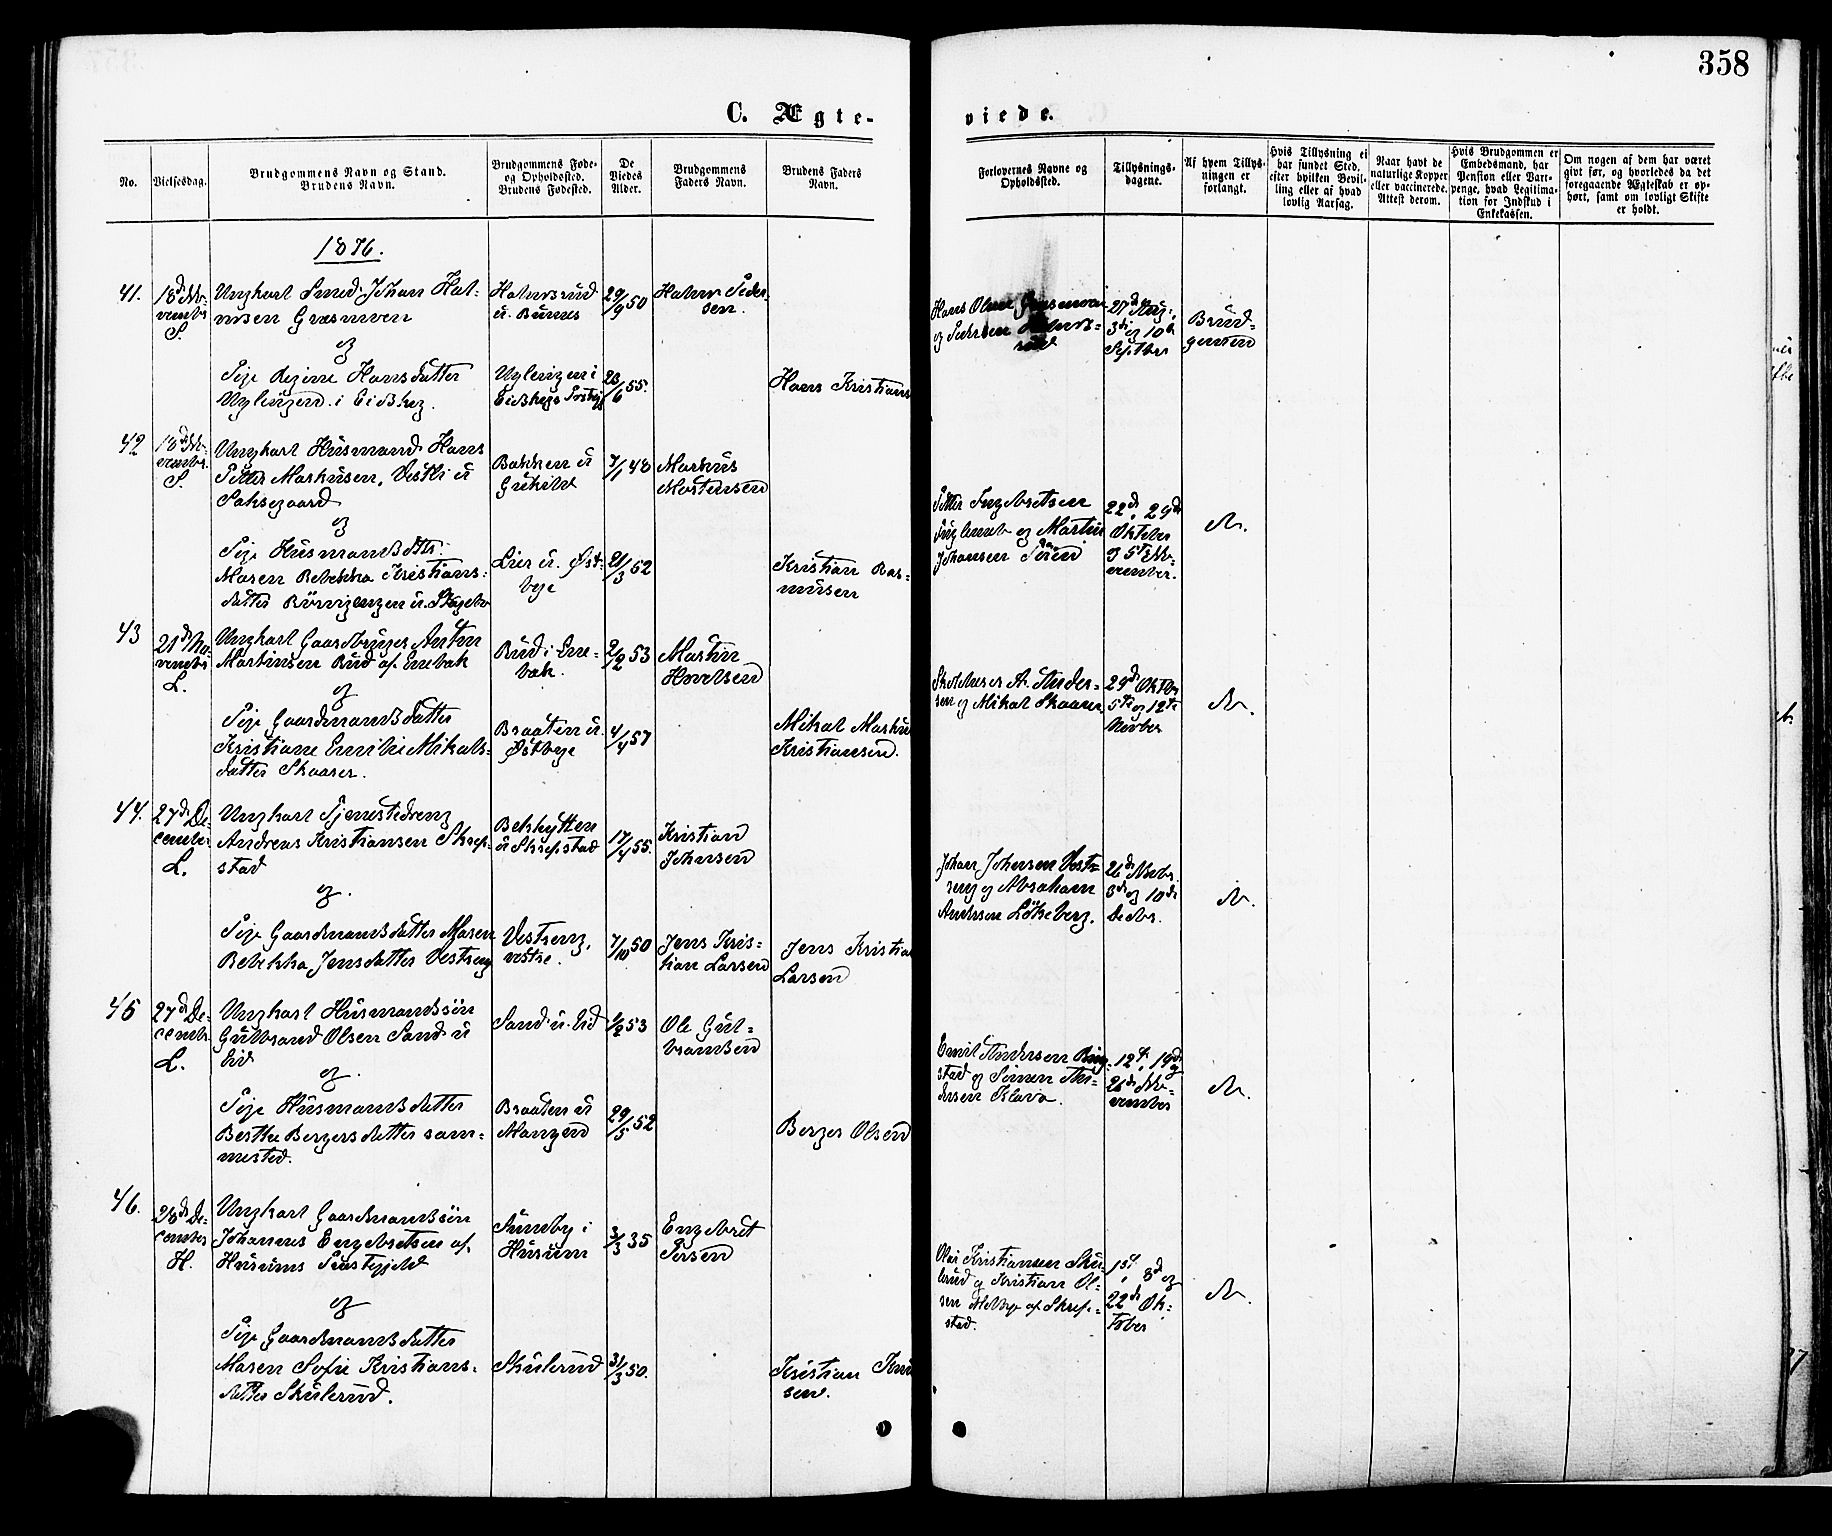 358
C. Ægte-
viede.
No.
Vielsesdag.
Brudgommens Navn og Stand.
Brudens Navn.
Brudgommens Føde-
og Opholdssted.
Brudens Fødested.
De
Viedes
Alder.
Brudgommens
Faders Navn.
Brudens Faders
Navn.
Forlovernes Navne og
Opholdssted.
Tillysnings-
dagene.
Af hvem Tillys-
ningen er
forlangt.
Hvis Tillysning ei
har fundet Sted,
efter hvilken Bevil-
ling eller af hvad
lovlig Aarsag.
Naar havt de
naturlige Kopper
eller vaccinerede.
Attest derom.
Hvis Brudgommen er
Embedsmand, har
Pension eller Vart-
penge, hvad Legitima-
tion for Indskud i
Enkekassen.
Om nogen af dem har været
givt før, og hvorledes da det
foregaaende Ægteskab er op-
hørt, samt om lovligt Skifte
er holdt.
1876.
41.
S.
Ungkarl Smed Johan
og
Pige Regine Hansdatter
i Eidskog.
29/9 50
23/6 55.
Hans Kristians
Hans Olsen
27de Aug.,
3die og 10de
Septber
Brud-
gommen
42
S.
Ungkarl Husmand Hans
Petter Markusen, Vestli u
Saksegaard
og
Pige Husmandsdttr.
Maren Rebekka Kristians-
datter
Bakken u
Lier u. Øst-
bye
7/1 48
21/3 52
Markus
Mortensen
Kristian Ras-
musen
Petter Ingebretsen
og Martin
Johansen
22de, 29de
Oktober
og 5te No-
vember.
do.
43
21de No-
vember
L.
Ungkarl Gaardbruger Anton
Martinsen Rud af Enebak
og
Pige Gaardmandsdatter
Kristiane Emilie Mikals-
datter Skaarer.
Rud i Ene-
bak.
Braaten u.
Østbye
2/2 53
4/4 57
Martin
Hovelsen
Mikal Markus
Kristiansen.
Skolelærer A. Ander-
sen og Mikal Skaarer.
29de Oktbr
5te og 12te
Novber
do.
44.
27de De-
cember
L.
Ungkarl Tjenestedreng
Andreas Kristiansen Skrep-
stad
og.
Pige Gaardmandsdatter Maren
Rebekka Jensdatter Vestreng
u Skrepstad
Vestreng,
vestre.
17/4 55.
7/10 50
Kristian
Johnsen
Jens Kris-
tian Larsen
Jens Kristian
Larsen
Johan Johansen Vest-
reng og Abraham
Andersen Løkeberg.
26de Novbr.
3die og 10de
Decbr.
do.
45
27de De-
cembr.
L.
Ungkarl Husmandssøn
Gulbrand Olsen Sand u
Eid
og.
Pige Husmandsdatter
Berthe Bergersdatter sam-
mested.
Sand u. Eid
Braaten u
Mangen
1/2 53
29/5 52
Ole Gul-
bransen
Berger Olsen
Emil Andersen
og Simen An-
dersen
12te, 19de og
26de No-
vember
do.
46.
28de De-
cember
H.
Ungkarl Gaardmandssøn
Johannes Engebretsen af
Hurums Præstegjeld
og
Pige Gaardmandsdatter
Maren Sofie Kristians-
datter Skulerud.
Hurum
Skulerud
3/3 35
31/3 50.
Engebret
Kristian
Olai Kristiansen Sku-
lerud og Kristian Ol-
sen Melbye af Skrep-
stad.
1ste, 8de og
22de Ok-
tober
do.